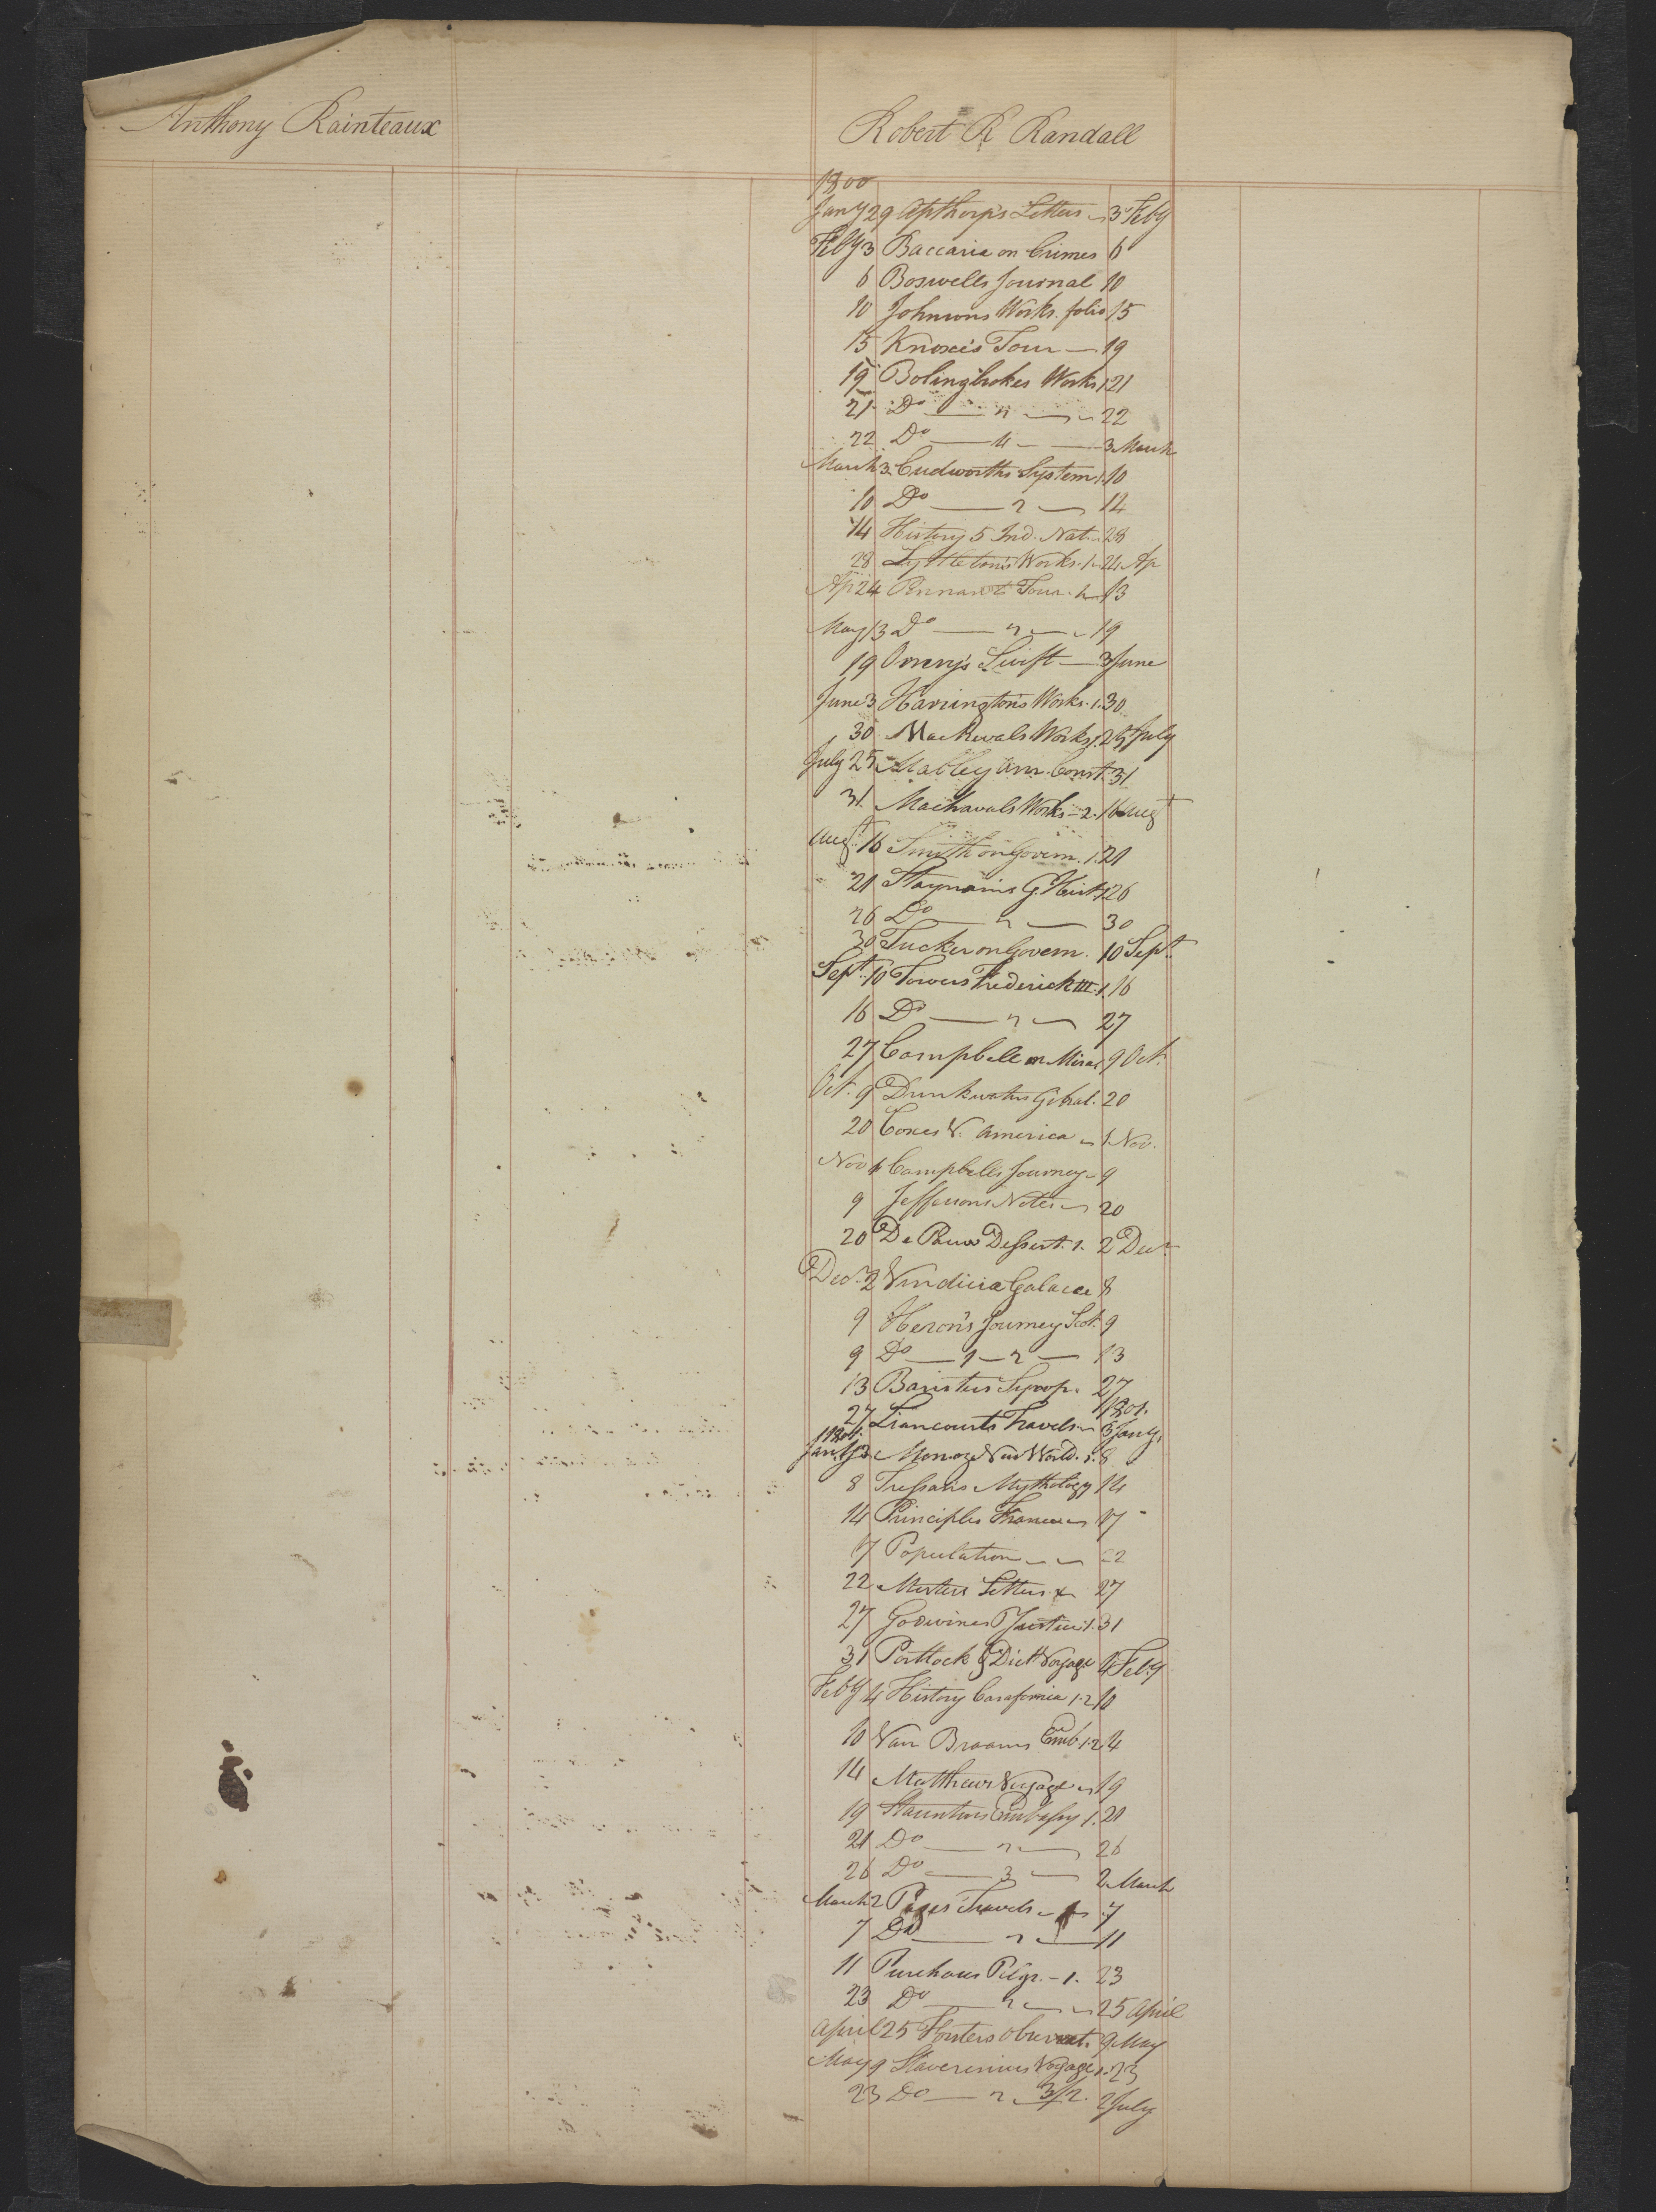 Anthony Rainteaux
Robert R Randall
1800
Jany 29 Apthorp's Letters 3 Feby
Feby 3 Baccaria on Crimes 6
6 Boswells Journal 10
10 Johnsons Works. folio 15
15 Knoxe's Tour — 19
19 Bolingbrokes Works 1 21
21 Do — 2 — 22
22 Do — 4 — 3 March
March 3 Cudworths System 1. 10
10 Do — 2 — 14
14 History 5 Ind. Nat. 28
28 Lyttleton's Works. 1 24 Ap
Ap 24 Pennant Tour. 1 13
May 13 Do — 2 — 19
19 Orrery's Swift — 3 June
June 3 Harringtons Works. 1. 30
30 Mackevals Works 1. 25 July
July 25 Mabley Am. Const. 31
31 Machavals Works - 2. 16 Augt
Augt. 16 Smith on Govern. 1. 21
21 Haynains G. 1 26
26 Do — 2 — 30
30 Tucker on Govern. 10 Sept.
Sept. 10 Towers Frederick III. 1. 16
16 Do — 2 — 27
27 Campbell on Mirac 9 Oct.
Oct. 9 Drinkwaters Gibral. 20
20 Coxes V. America 1 Nov.
Nov 1 Campbells Journey 9
9 Jeffersons Notes 20
20 De Pauw Dessert. 1. 2 Decr
Decr. 2 Vindicia Galacae 8
9 Heron's Journey Scot. 9
9 Do — 1 — 2 — 13
13 Baristers 27
1801.
27 Liancourts Travels 3 Jany.
1801.
Jany 3 New World. 1. 8
8 Tressans Mythology 14
14 Principles 17
17 Population 22
22 Letters 27
27 Godwines P Justice 1. 31
31 Portlock & Dict Voyage 4 Feby
Feby 4 History Carafornia 1. 2 10
10 Van Braams Emb 1. 2 4
14 Matthews Voyage 19
19 Stauntons Embassy 1. 21
21 Do — 2 — 26
26 Do — 3 — 2 March
March 2 Pages Travels 1 7
7 Do — 2 — 11
11 Purchaus Pilgr. - 1. 23
23 Do — 2 — 25 April
April 25 Forsters Observat. 9 May
May 9 Staverinus Voyage 1. 23
23 Do — 2 3/2. 2 July